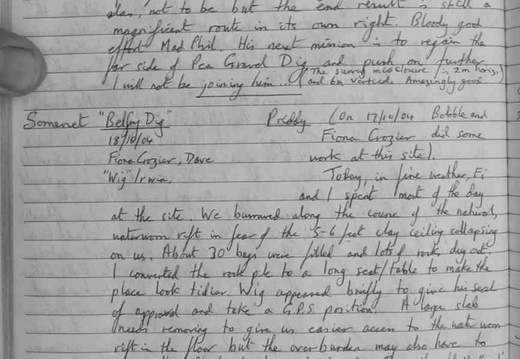 alas, not to be but the end result is still a
magnificent route in its own right. Bloody good
effort Mad Phil. His next mission is to regain the
far side of Pea Gravel Dig and push on further.
I will not be joining him... (The survey misclosure is 2m horiz,
and 6m vertical. Amazingly good
Somerset "Belfry Dig" Priddy (On 17/10/04 Bobble and
18/10/04 Fiona Crozier did some
Fiona Crozier, Dave work at this site).
"Wig" Irwin. Today, in fine weather, Fi
and I spent most of the day
at the site. We burrowed along the course of the natural,
waterworn rift in fear of the 5-6 feet clay ceiling collapsing
on us. About 30 bags were filled and lots of rock dug out.
I converted the rock pile to a long seat/table to make the
place look tidier. Wig appeared briefly to give his seal
of approval and take a G.P.S. position. A large slab
needs removing to give us easier access to the water worn
rift in the floor but the overburden may also have to